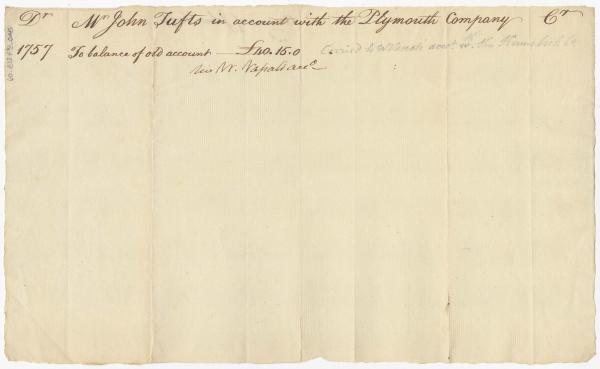 Dr Mr John Tufts in account with the Plymouth Company Cr
1757 To balance of old account — £40.15.0 Carried to acct wth the Kennebeck Co
W. Vassall